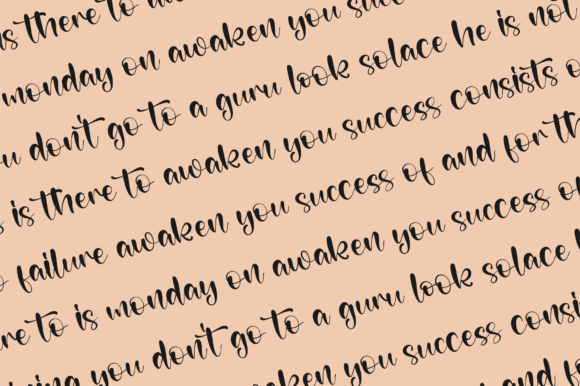 is there to
monday on awaken you succ
u don't go to a guru look solace he is not
s is there to awaken you success consists o
failure awaken you success of and for th
ere to is monday on awaken you success of
you don't go to a guru look solace
awaken you success consi
and fo